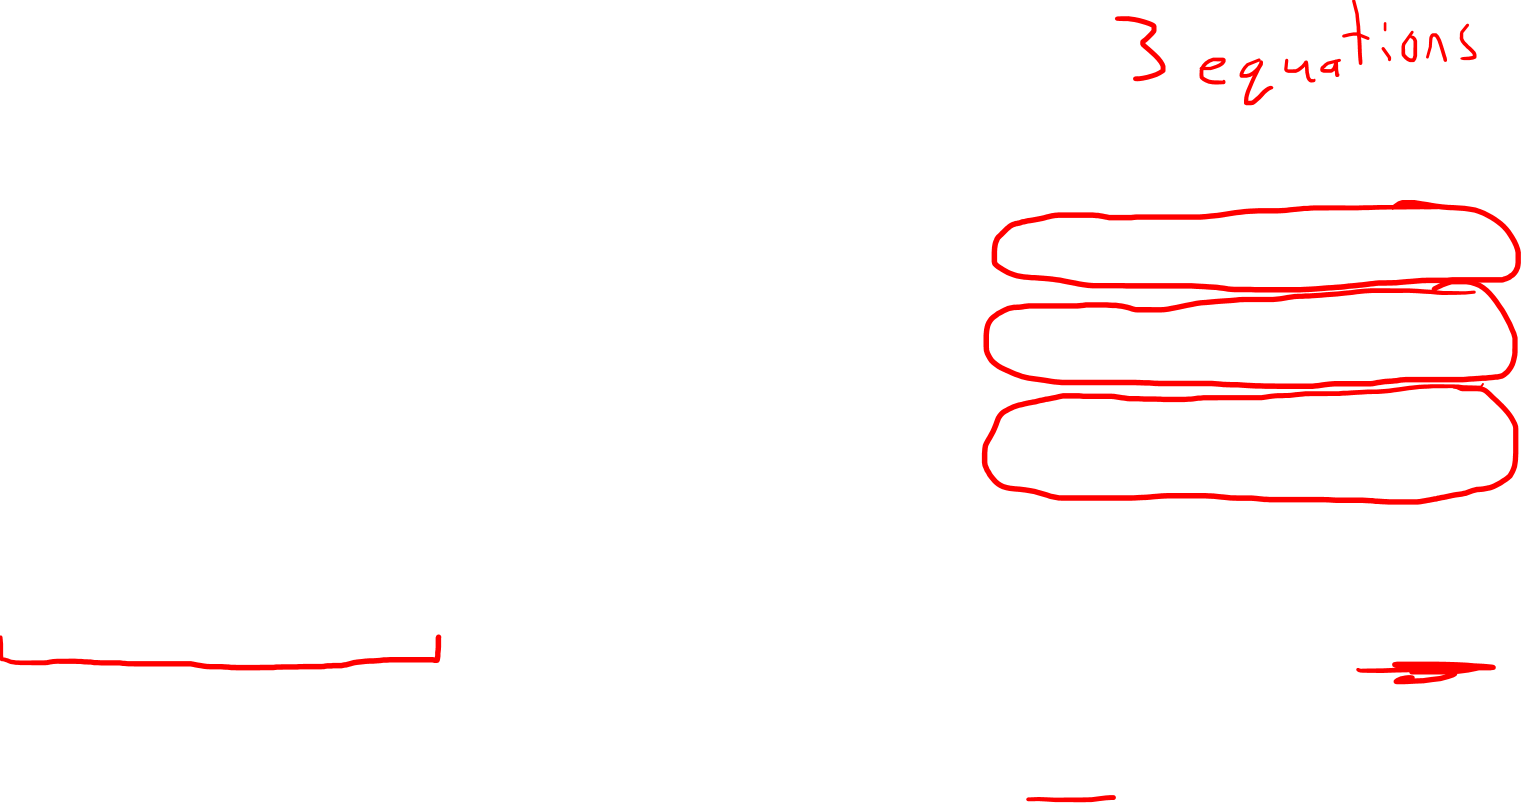 3 equations